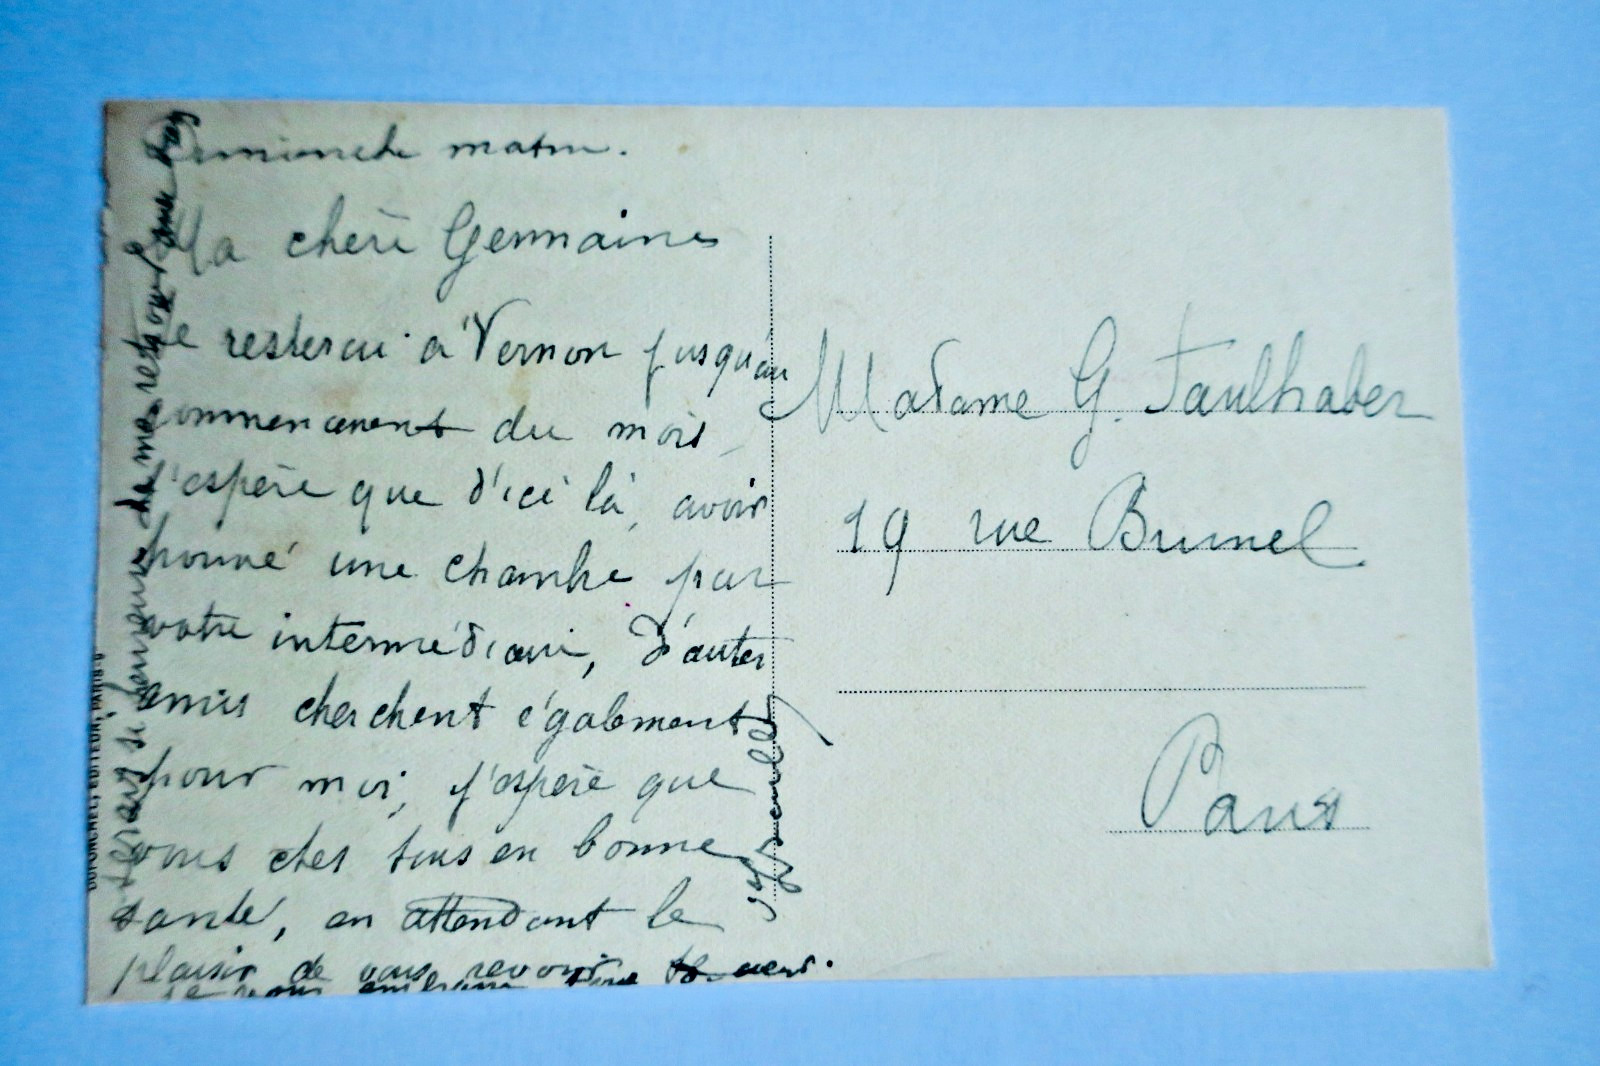 Dimanche matin.
Ma chère Germaine
Je resterai à Vernon jusqu'au
commencement du mois,
j'espère que d'ici là, avoir
trouvé une chambre par
votre intermédiaire, d'autres
amis cherchent également
pour moi, j'espère que
vous êtes tous en bonne
santé, en attendant le
plaisir de vous revoir
je vous embrasse
serais si heureux de ma retour
Madame G. Faulhaber
19 rue Brunel
Paris
EDITEUR, PARIS-9